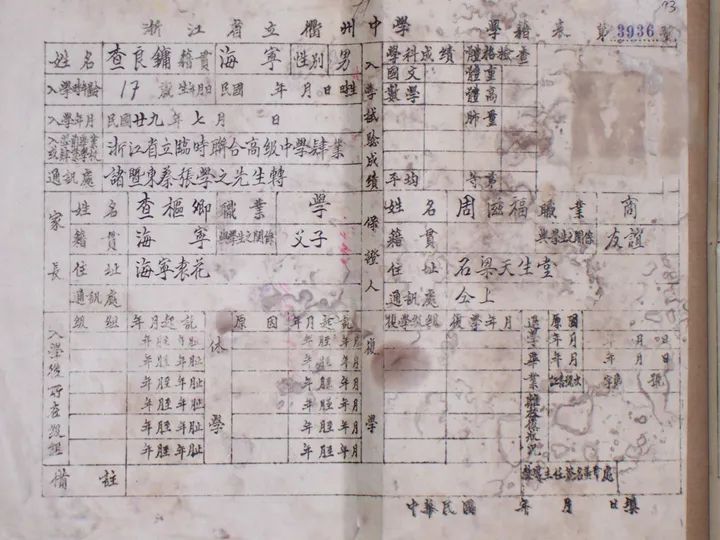 浙江省立衢州中學 學籍表 第3936號
姓名 查良鏞 籍貫 海寧 性別 男
入學時年齡 17 歲 生年月日 民國 年 月 日生
入學年月 民國廿九年七月 日
浙江省立臨時聯合高級中學肄業
通訊處 諸暨東蔡張學之先生轉
入學試驗成績
學科成績 體格檢查
國文 體重
數學 體高
肺量
平均 等第
家長
姓名 查樞卿 職業 學
籍貫 海寧 與學生之關係 父子
住址 海寧袁花
通訊處
保證人
姓名 周 福 職業 商
籍貫 與學生之關係 友誼
住址 石梁天生堂
通訊處 仝上
入學後所在級組 級組 年月起訖 休學 原因 年月起訖 復學 復學級組 復學年月 原因
年 月 年 月 年 月 年 月 年 月 日
年 月 年 月 年 月 年 月 年 月 日
年 月 年 月 年 月 年 月 字第 號
年 月 年 月 年 月 年 月
年 月 年 月 年 月 年 月
年 月 年 月 年 月 年 月
備註
中華民國 年 月 日填